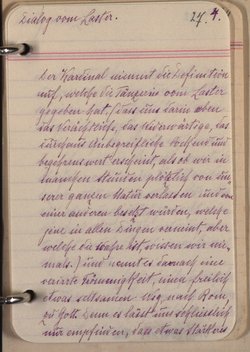 Dialog vom Laster.
27. 4.
Der Kardinal nimmt die Definition
auf, welche die Tänzerin vom Laster
gegeben hat. (Dass uns darin eben
das Verächtliche, das Widerwärtige, das
durchaus Unbegreifliche
begehrenswert erscheint, als ob wir in
manchen Stunden plötzlich von un-
serer ganzen Natur verlassen und von
einer anderen besetzt würden, welche
jene in allen Dingen verneint, aber
welche die wahre ist, wissen wir nie-
mals.) und nennt es danach eine
verirrte Frömmigkeit, einen freilich
etwas seltsamen Weg nach Rom,
zu Gott. Denn es lässt uns schliesslich
nur empfinden, dass etwas Stärkeres